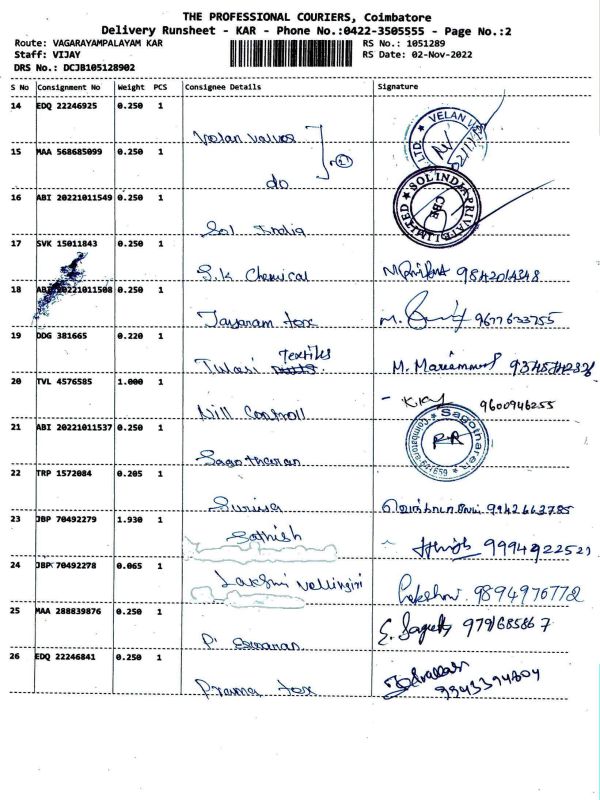 THE PROFESSIONAL COURIERS, Coimbatore
Delivery Runsheet - KAR - Phone No.:0422-3505555 - Page No.:2
Route: VAGARAYAMPALAYAM KAR
RS No.: 1051289
Staff: VIJAY
RS Date: 02-Nov-2022
DRS No.: DCJB105128902
S No Consignment No Weight PCS Consignee Details Signature
14 EDQ 22246925 0.250 1 Velan Valves
15 MAA 568685099 0.250 1 do
16 ABI 20221011549 0.250 1 Sol India
17 SVK 15011843 0.250 1 S.K Chemical 9842014348
18 ABI 20221011508 0.250 1 Jayaram tex M. 9677633755
19 DDG 381665 0.220 1 Tulasi Textiles M. Mariammal
20 TVL 4576585 1.000 1 Nill Controll 9600946255
21 ABI 20221011537 0.250 1 Sagotharan
22 TRP 1572084 0.205 1 Suriya 9942663785
23 JBP 70492279 1.930 1 Sathish 9994922521
24 JBP 70492278 0.065 1 Lakshmi Vellingiri 9894976772
25 MAA 288839876 0.250 1 P.
26 EDQ 22246841 0.250 1 Prama tex 9943394804